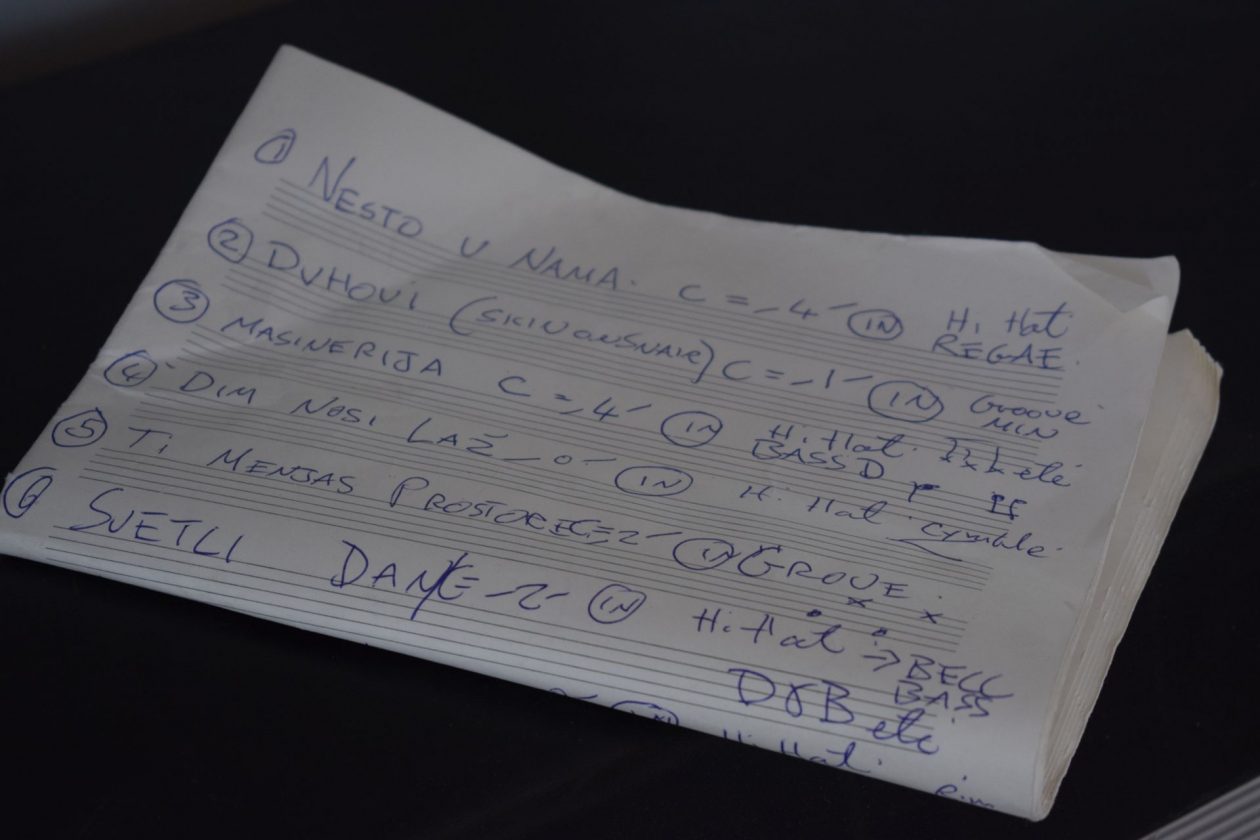 ① NESTO U NAMA. C = -4- IN Hi Hat
REGAE.
② DUHOVI (SKINONSNAIR) C = -1- IN Groove
MIN
③ MASINERIJA C = -4- IN Hi Hat. etc
BASS D
④ DIM NOSI LAŽ -0- IN Hi Hat cymble
⑤ Ti MENJAS -2- IN GROUVE.
⑥ SVETLI DANE -2- IN Hi Hat → BELL
BASS
D&B etc
Hi Hat.